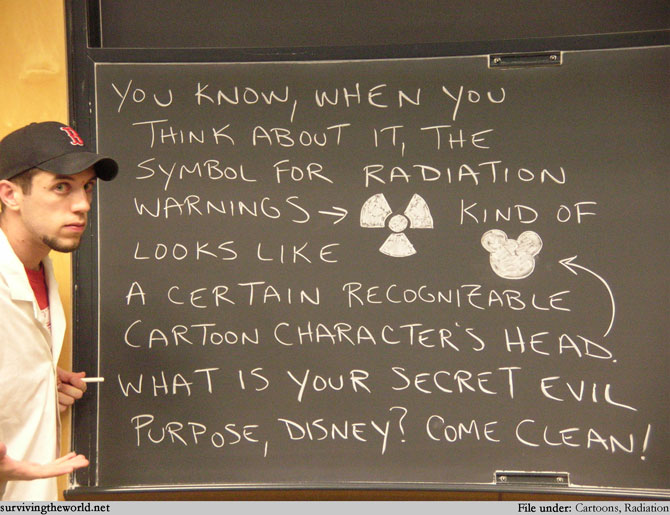 B
YOU KNOW, WHEN YOU
THINK ABOUT IT, THE
SYMBOL FOR RADIATION
WARNINGS → KIND OF
LOOKS LIKE
A CERTAIN RECOGNIZABLE
CARTOON CHARACTER'S HEAD.
WHAT IS YOUR SECRET EVIL
PURPOSE, DISNEY? COME CLEAN!
survivingtheworld.net File under: Cartoons, Radiation